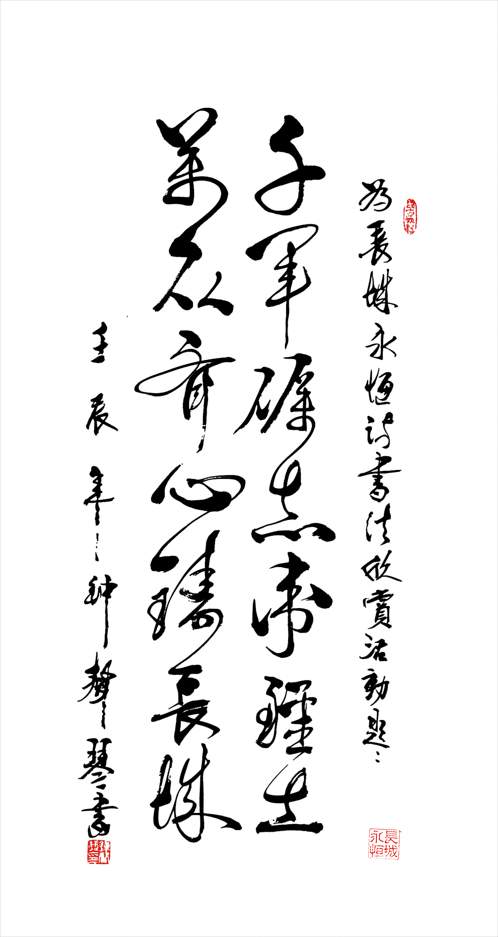 為長城永恒詩書法欣賞活動題
千軍礪志衛疆土
萬众齊心鑄長城
壬辰年钟聲琴書
長城永恒